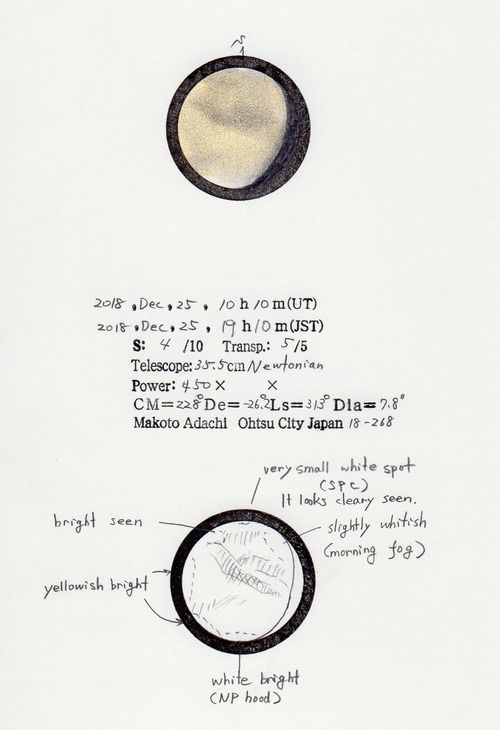 S
2018, Dec, 25, 10 h 10 m(UT)
2018, Dec, 25, 19 h 10 m(JST)
S: 4 /10 Transp.: 5/5
Telescope: 35.5cm Newtonian
Power: 450 × ×
CM=228° De=-26.2° Ls=313° Dia=7.8"
Makoto Adachi Ohtsu City Japan 18-268
very small white spot
(SPC)
It looks cleary seen.
bright seen
slightly whitish
(morning fog)
yellowish bright
white bright
(NP hood)